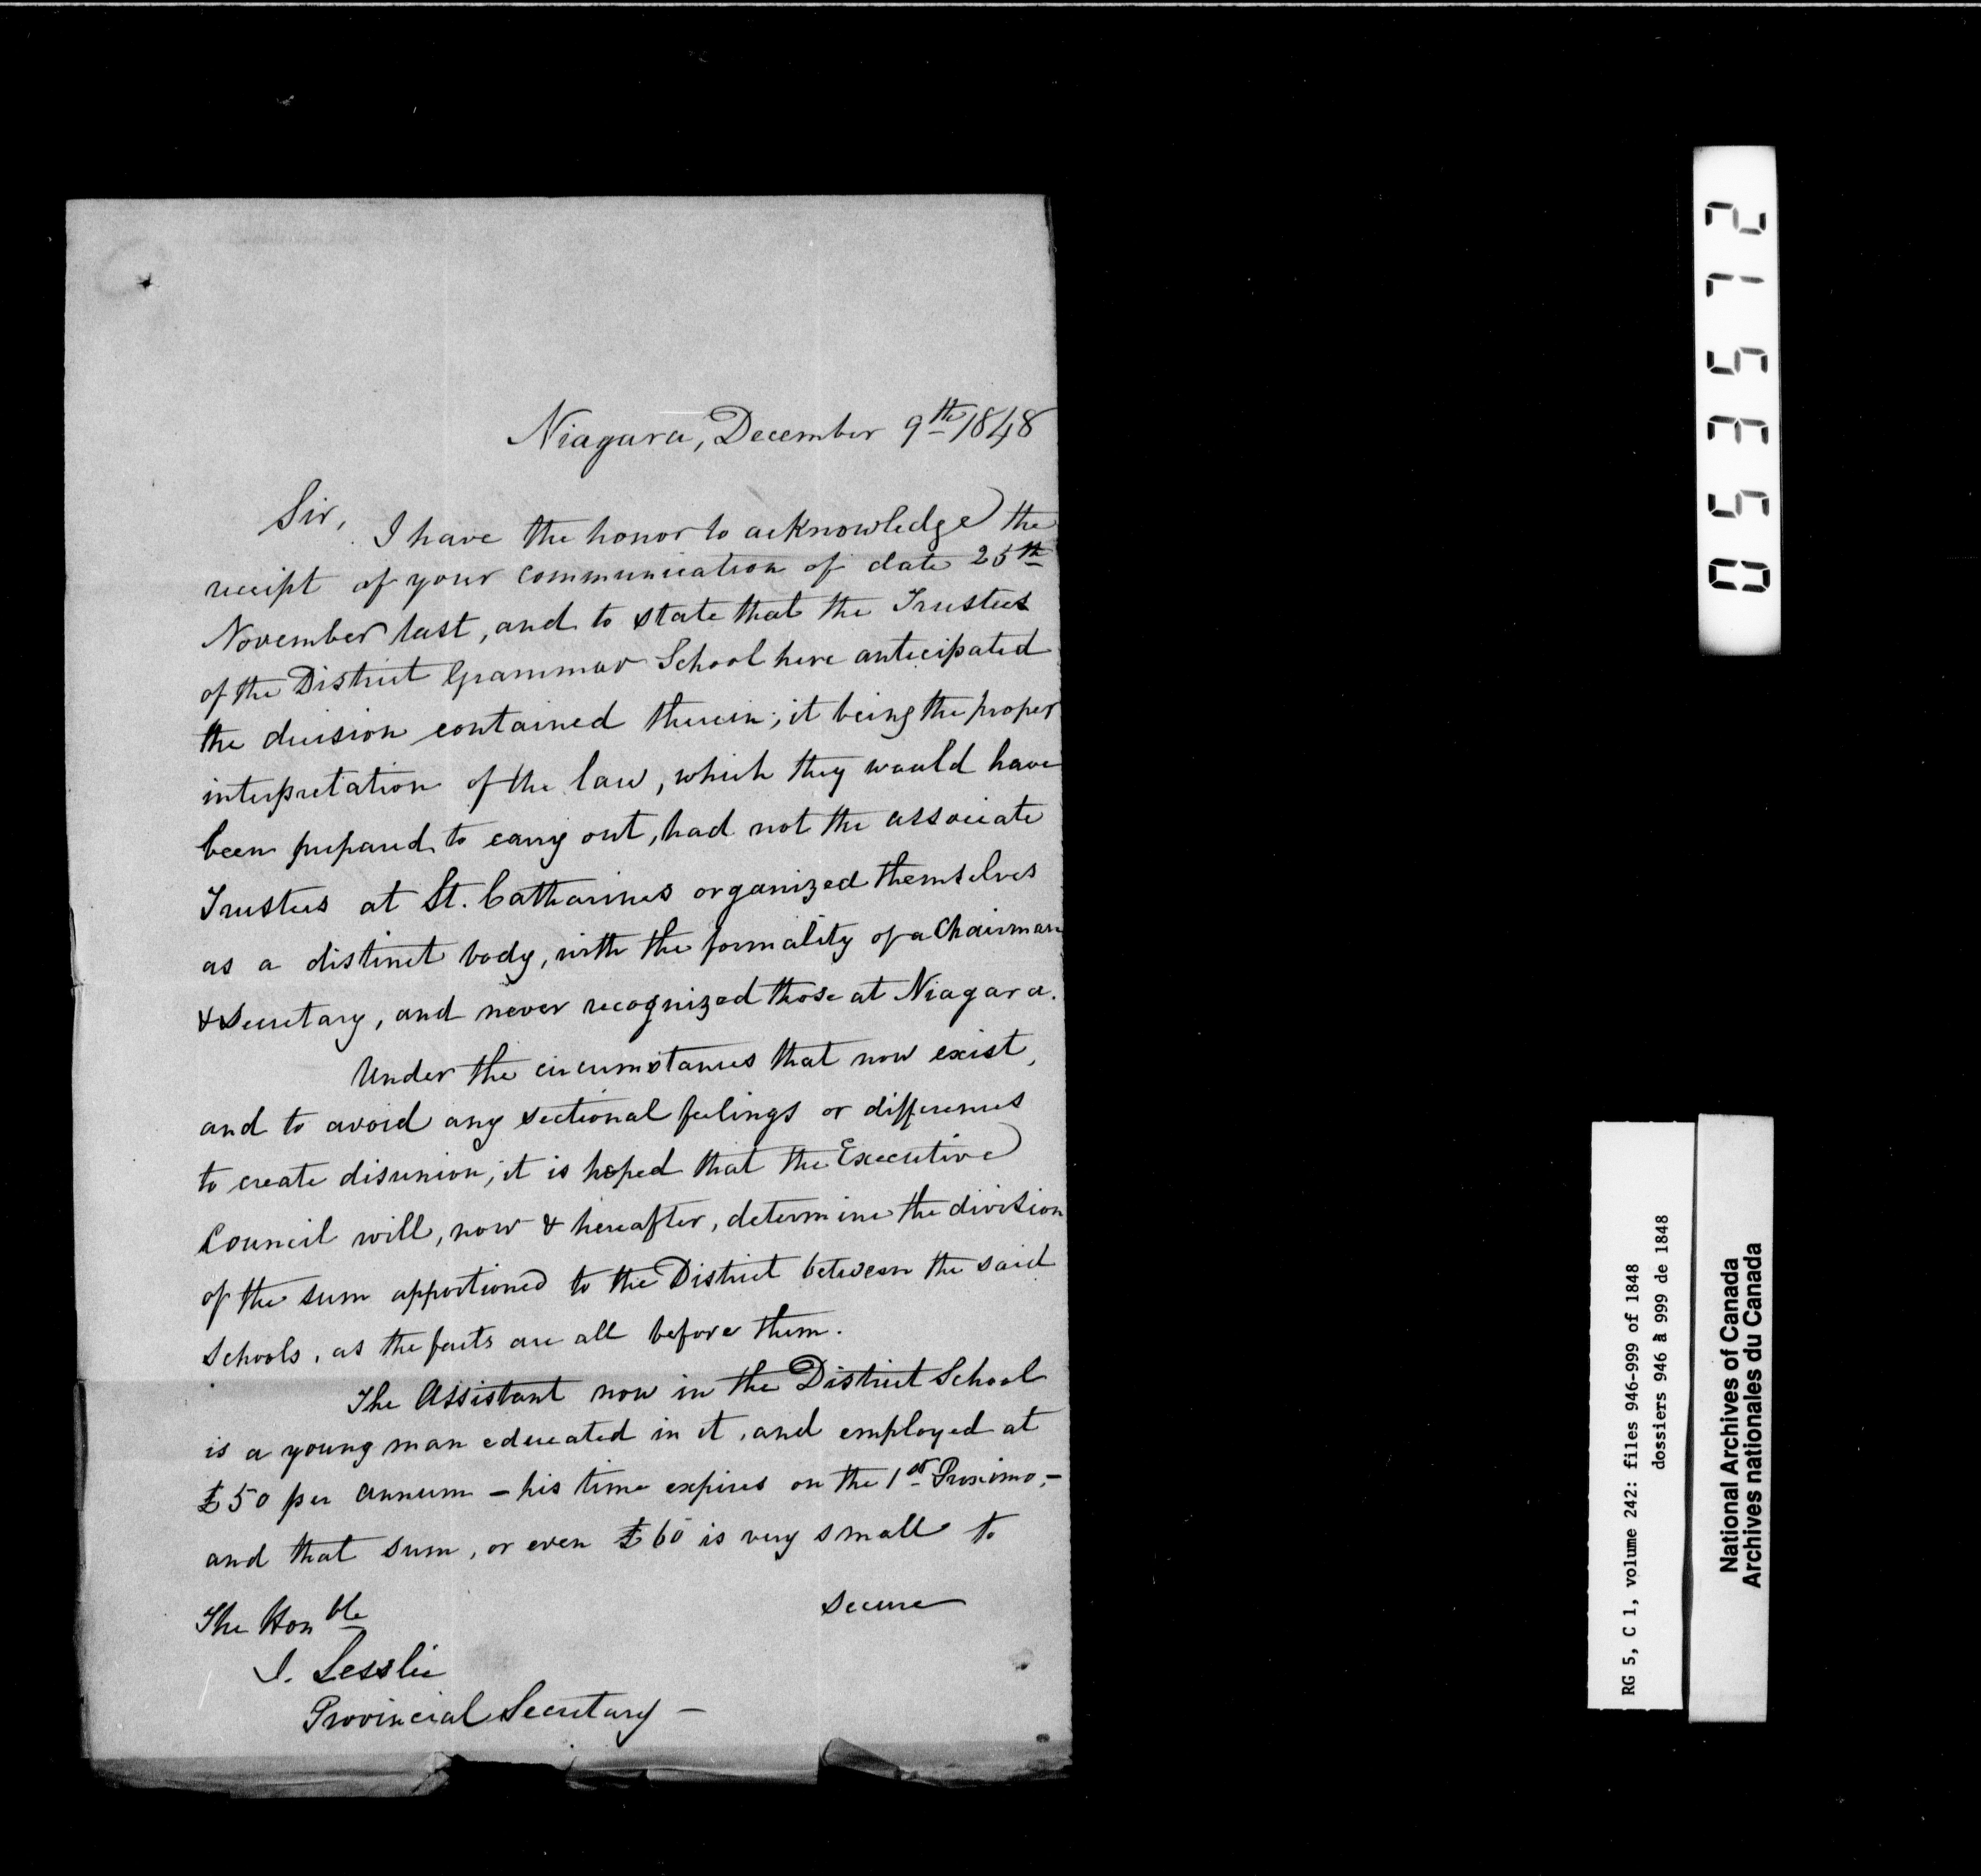 Niagara, December 9th 1848
Sir, I have the honor to acknowledge the
receipt of your communication of date 25th
November last, and to state that the Trustees
of the District Grammar School here anticipated
the decision contained therein; it being the proper
interpretation of the law, which they would have
been prepared to carry out, had not the associate
Trustees at St. Catharines organized themselves
as a distinct body, with the formality of a Chairman
& Secretary, and never recognized those at Niagara.
Under the circumstances that now exist,
and to avoid any sectional feelings or differences
to create disunion; it is hoped that the Executive
Council will, now & hereafter, determine the division
of the sum apportioned to the District between the said
Schools, as the facts are all before them.
The Assistant now in the District School
is a young man educated in it, and employed at
£50 per annum – his time expires on the 1st Proximo, –
and that sum, or even £60 is very small to
secure
The Honble
J. Lesslie
Provincial Secretary –
053512
RG 5, C 1, volume 242: files 946-999 of 1848
dossiers 946 à 999 de 1848
National Archives of Canada
Archives nationales du Canada